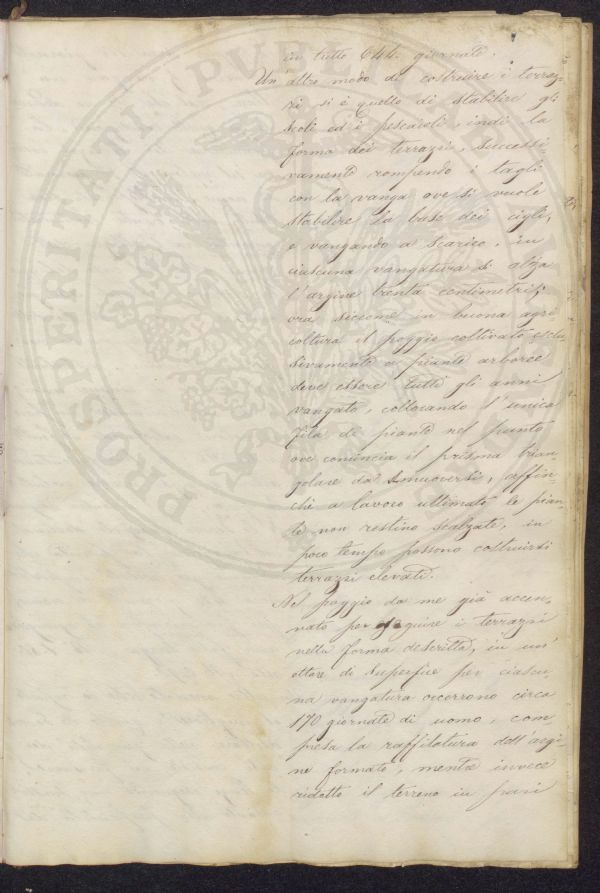 in tutto 644. giornate.
Un'altro modo di costruire i terraz-
zi si è quello di stabilire gli
scoli ed i pescaioli, indi la
forma dei terrazzi, successi-
vamente rompendo i tagli
con la vanga ove si vuole
stabilire la base dei cigli,
e vangando a scarico, in
ciascuna vangatura si alza
l'argine trenta centimetri;
ora siccome in buona agri
coltura il poggio coltivato esclu
sivamente a piante arboree
deve essere tutti gli anni
vangato, collocando l'unica
fila di piante nel punto
ove comincia il prisma trian-
golare da smuoversi, affin-
chè a lavoro ultimato le pian-
te non restino scalzate, in
poco tempo possono costruirsi
terrazzi elevati.
Nel poggio da me già accen-
nato per eseguire i terrazzi
nella forma descritta, in un'
ettare di superfice per ciascu-
na vangatura occorrono circa
170 giornate di uomo, com
presa la raffilatura dell'argi-
ne formato, mentre invece
ridotto il terreno in piani
PROSPERITATI PUBLICAE